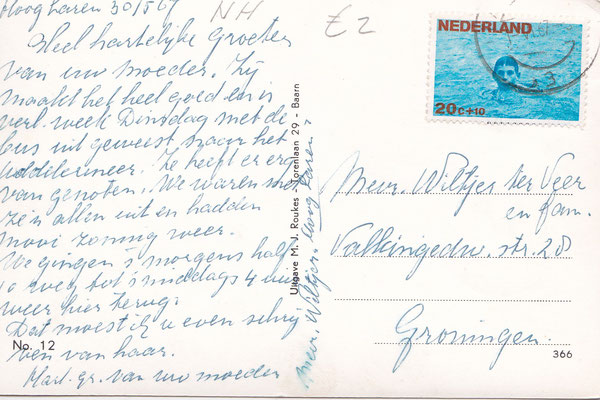 Hoog Laren 30/5 67
NH
£ 2
Heel hartelijke Groeten
van uw moeder. Zij
maakt het heel goed en is
verl. week Dinsdag met de
bus uit geweest naar het
Uddelermeer. Ze heeft er erg
van genoten. We waren met
z'en allen uit en hadden
mooi zonnig weer.
We gingen s'morgens half
weg tot s'middags 4 uur
weer hier terug.
Dat moest ik u even schrij
ven van haar.
Hart. gr. van uw moeder
No. 12
Uitgave M. J. Roukes - Norenlaan 29 - Baarn
Mevr. Wiltjer. Hoog Laren
NEDERLAND
20c+10
Mevr. Wiltjer ter Veer
en fam.
Valkingedw. str. 28
Groningen.
366